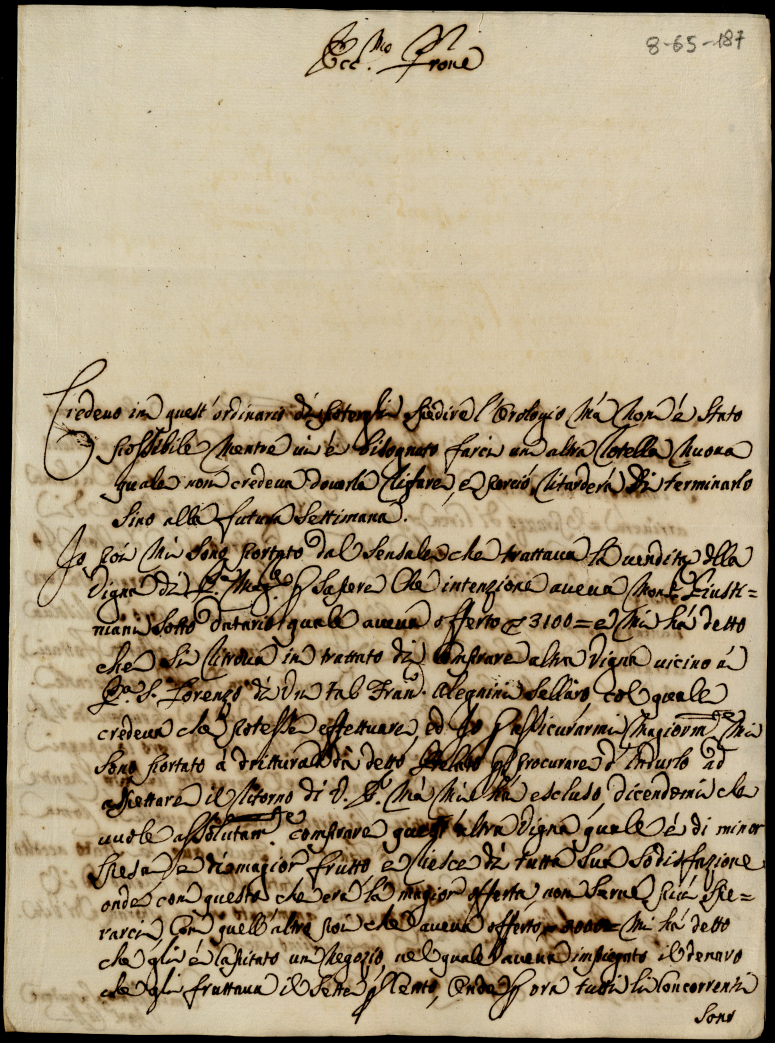 8-65-187
Ecc.mo Prone
Credevo in quest'ordinario di potergli spedire l'Orologio Mà Non è Stato
possibile Mentre vi è bisognato farci un altra Rotella Nuova
quale non credeva doverla rifare, e perciò ritarderà di terminarlo
sino alla futura Settimana.
Io poi Mi Sono portato dal Sensale che trattava la vendita della
Vigna di P.a Mag.e p sapere che intenzione aveva Mons.r Giusti=
niani Sotto Datario quale aveva offerto 3100= e Mi hà detto
che si ritrova in trattato di comprare altra Vigna vicino à
P.a S. Lorenzo di Un tal Fran.o Alegnini Sellaro, col quale
credeva che potesse effettuare, ed Io p assicurarmi Magiorm.te Mi
Sono portato à drittura dà detto Prelato p procurare d'Indurlo ad
aspettare il ritorno di V. E. Mà Mi hà escluso, dicendomi che
vuole assolutam.te comprare quest'altra Vigna quale è di minor
spesa, e di magior frutto, e riesce di tutta Sua Sodisfazione
onde con questa che era la magior offerta, non Serve più Spe=
rarci, Con quell'altro poi che aveva offerto 3000= Mi hà detto
che gli è Capitato un Negozio, nel quale aveva impiegato il denaro
che gli fruttava il Sette p Cento, Onde p ora tutti li Concorrenti
Sono